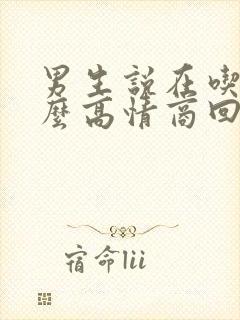 男生說在喫
麼高情商回
宿命lii